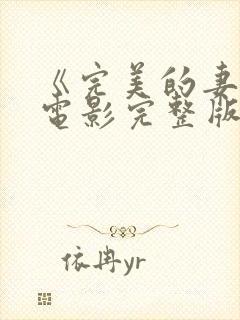 《完美的妻
电影完整版
依冉yr